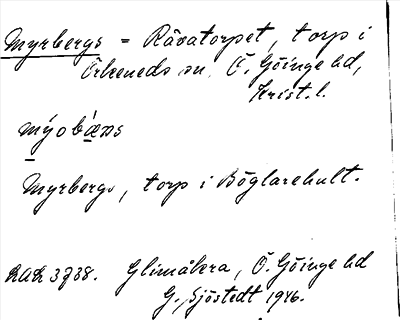 Myrbergs = Rävatorpet, torp i
Örkeneds sn, Ö. Göinge hd,
Krist. l.
mýobæ̀ns
Myrbergs, torp i Böglarehult.
LAL 3938. Glimåkra, Ö. Göinge hd
G. Sjöstedt 1946.